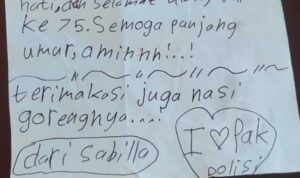 hati, dan selamat
ke 75. Semoga panjang
umur, aminnn!..!
terimakasi juga nasi
gorengnya....
dari Sabilla
I ♡ Pak
polisi